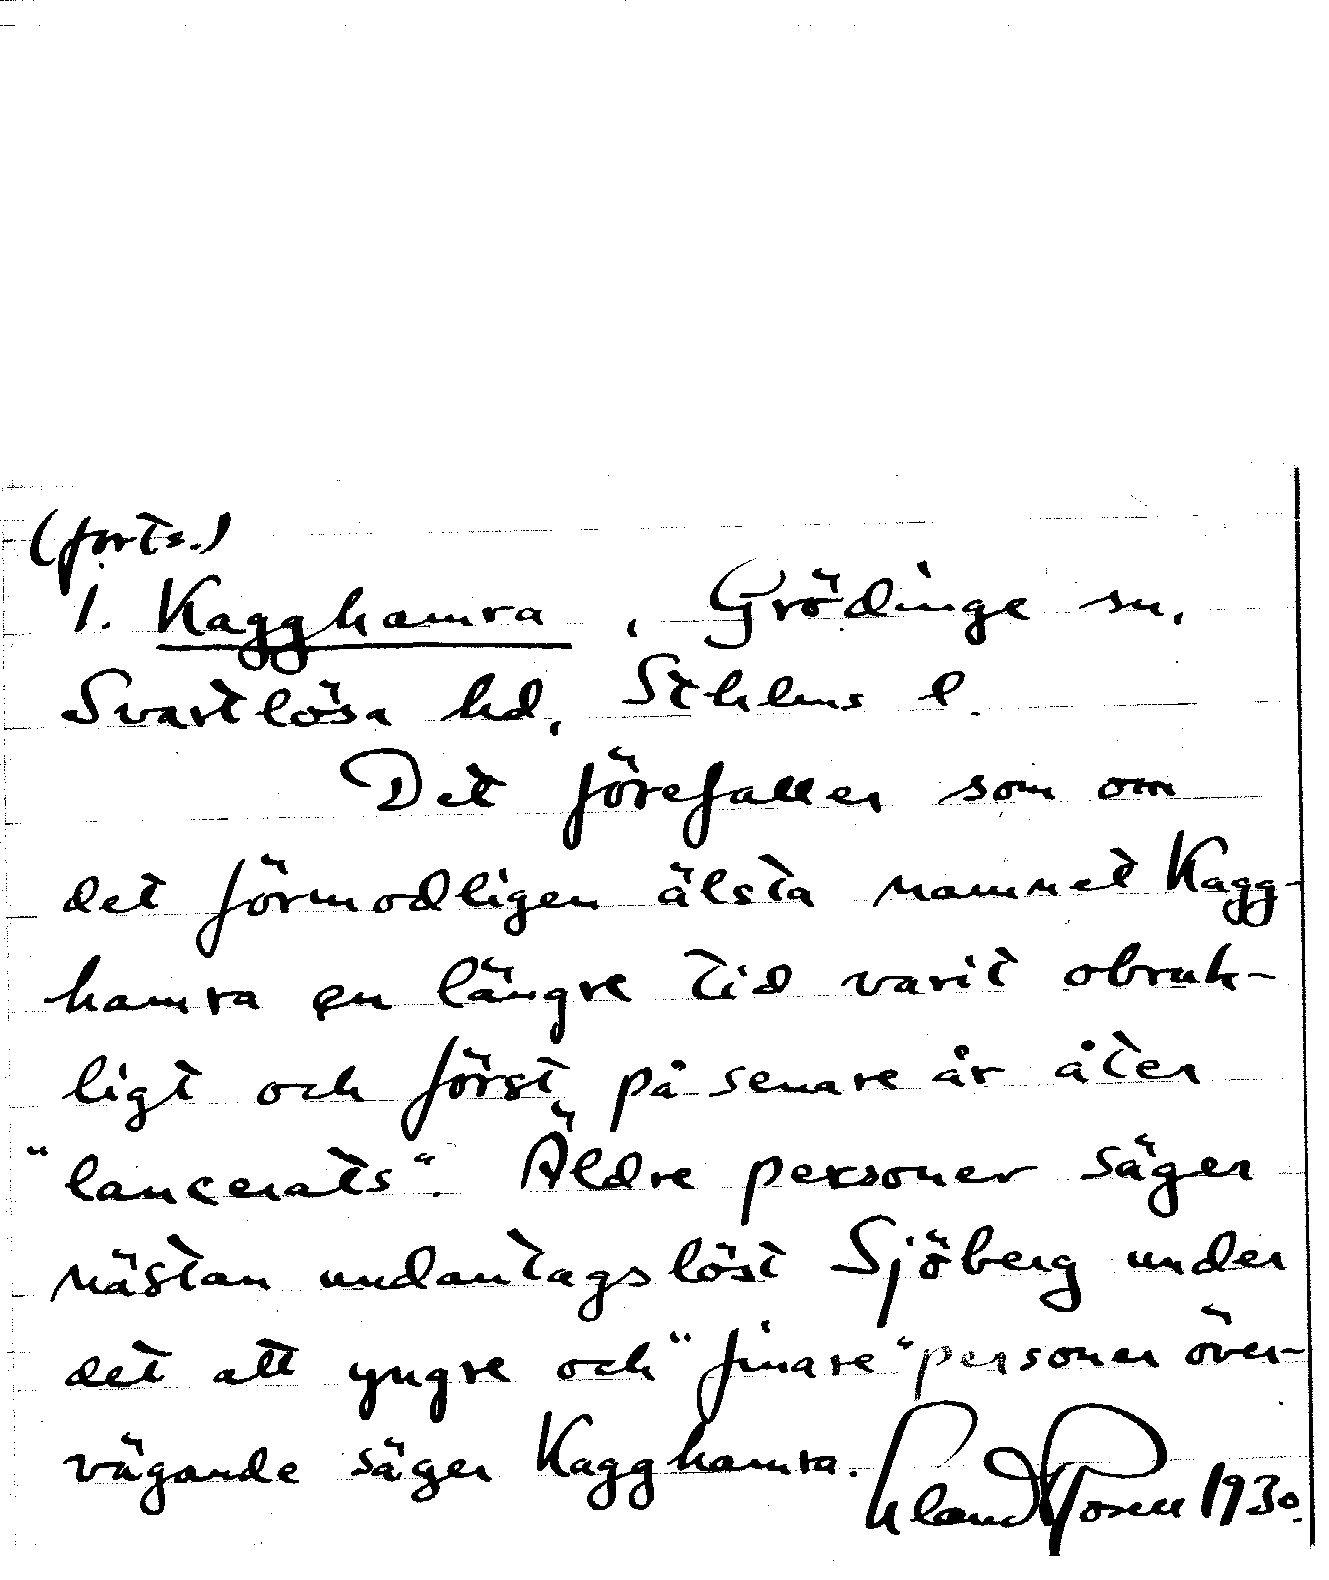 (forts.)
1. Kagghamra, Grödinge sn,
Svartlösa hd, Sthlms l.
Det förefaller som om
det förmodligen älsta namnet Kagg-
hamra en längre tid varit obruk-
ligt och först på senare år åter
"lancerats". Äldre personer säger
nästan undantagslöst Sjöberg under
det att yngre och "finare" personer över-
vägande säger Kagghamra.
Rosen 1930.